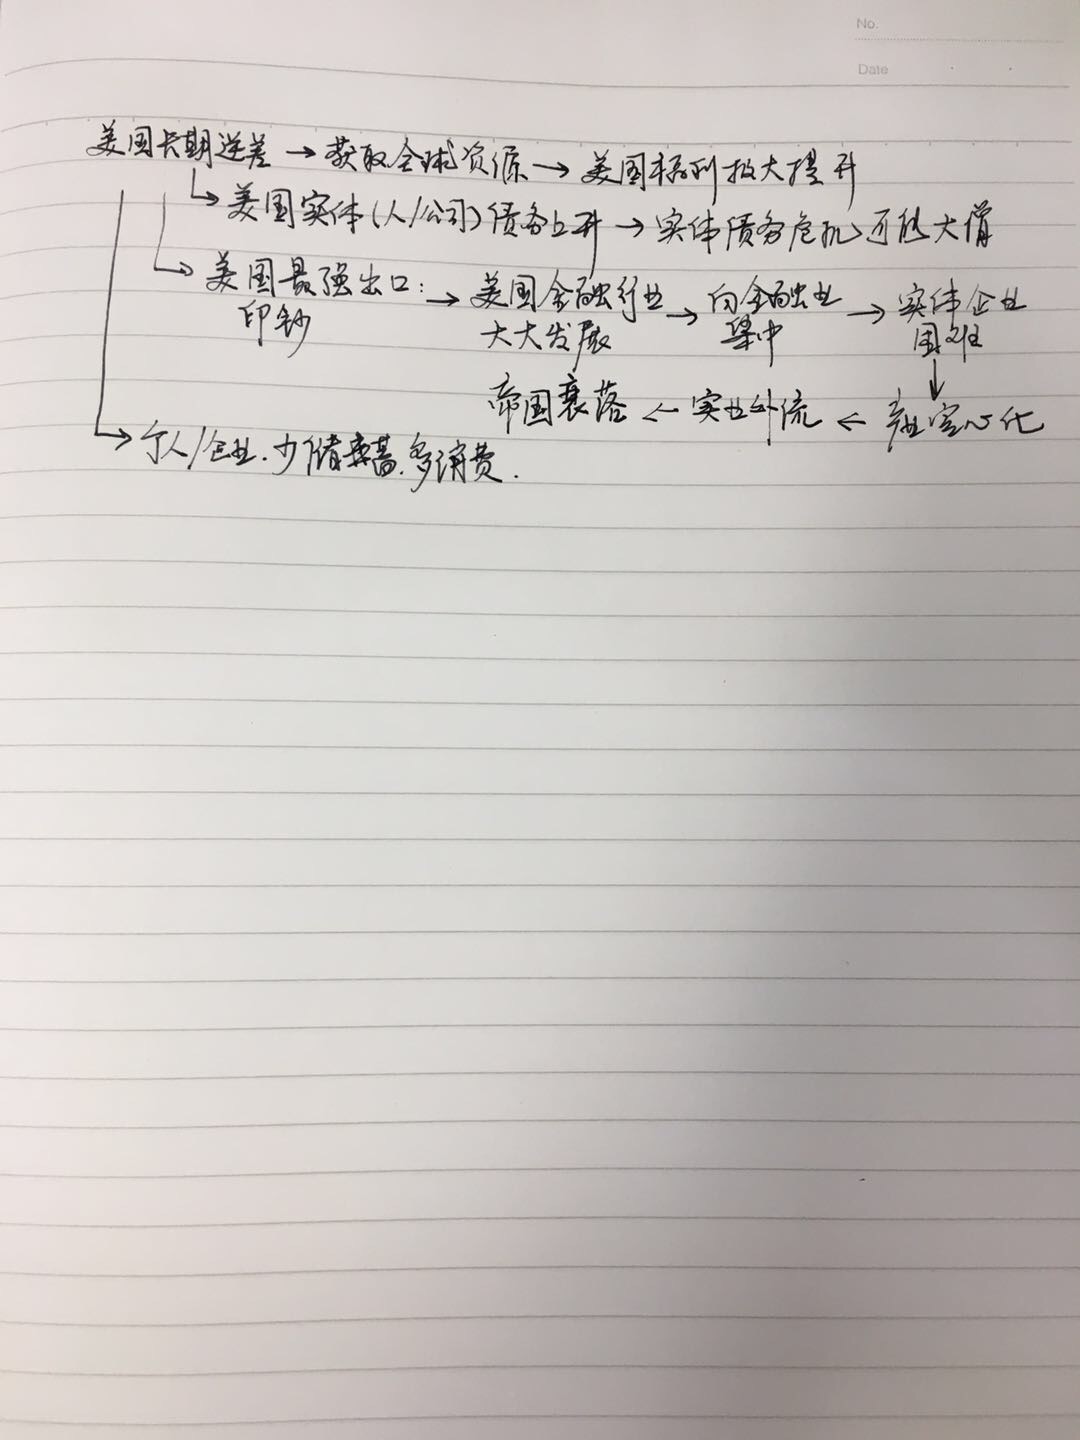 No.
Date
美国长期逆差→获取全球资源→美国福利极大提升
↳美国实体(人/公司)债务上升→实体债务危机可能大增
↳美国最强出口:→美国金融行业→向金融业→实体企业
印钞 大大发展 集中 困难
↓
帝国衰落←实业外流←产业空心化
↳个人/企业.少储蓄.多消费.